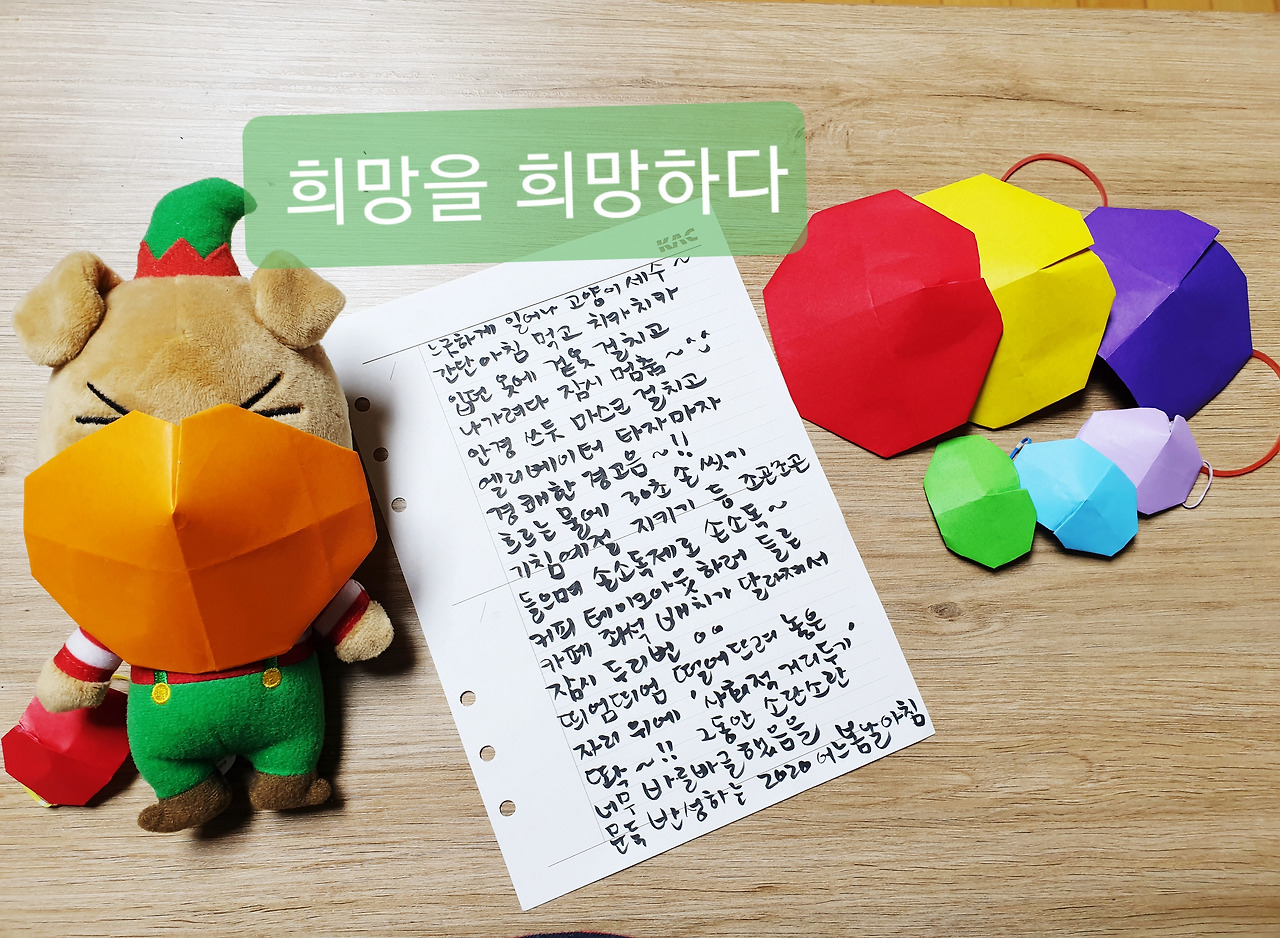 희망을 희망하다
KAC
느긋하게 일어나 고양이 세수~
간단아침 먹고 치카치카
입던 옷에 겉옷 걸치고
나가려다 잠시 멈춤~^^
안경 쓰듯 마스크 걸치고
엘리베이터 타자마자
경쾌한 경고음~!!
흐르는 물에 30초 손 씻기
기침예절 지키기 등 조곤조곤
들으며 손소독제로 손소독~
커피 테이크아웃하러 들른
카페 좌석 배치가 달라져서
잠시 두리번 00
띄엄띄엄 떨어뜨려 놓은
자리 위에 '사회적 거리두기'
딱~!! 그동안 소란소란
너무 바글바글했음을
문득 반성하는 2020 어느봄날아침